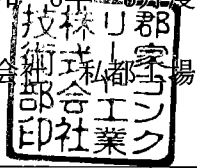 会社 私都工場
郡家コンク
リート工業
株式会社
技術部印